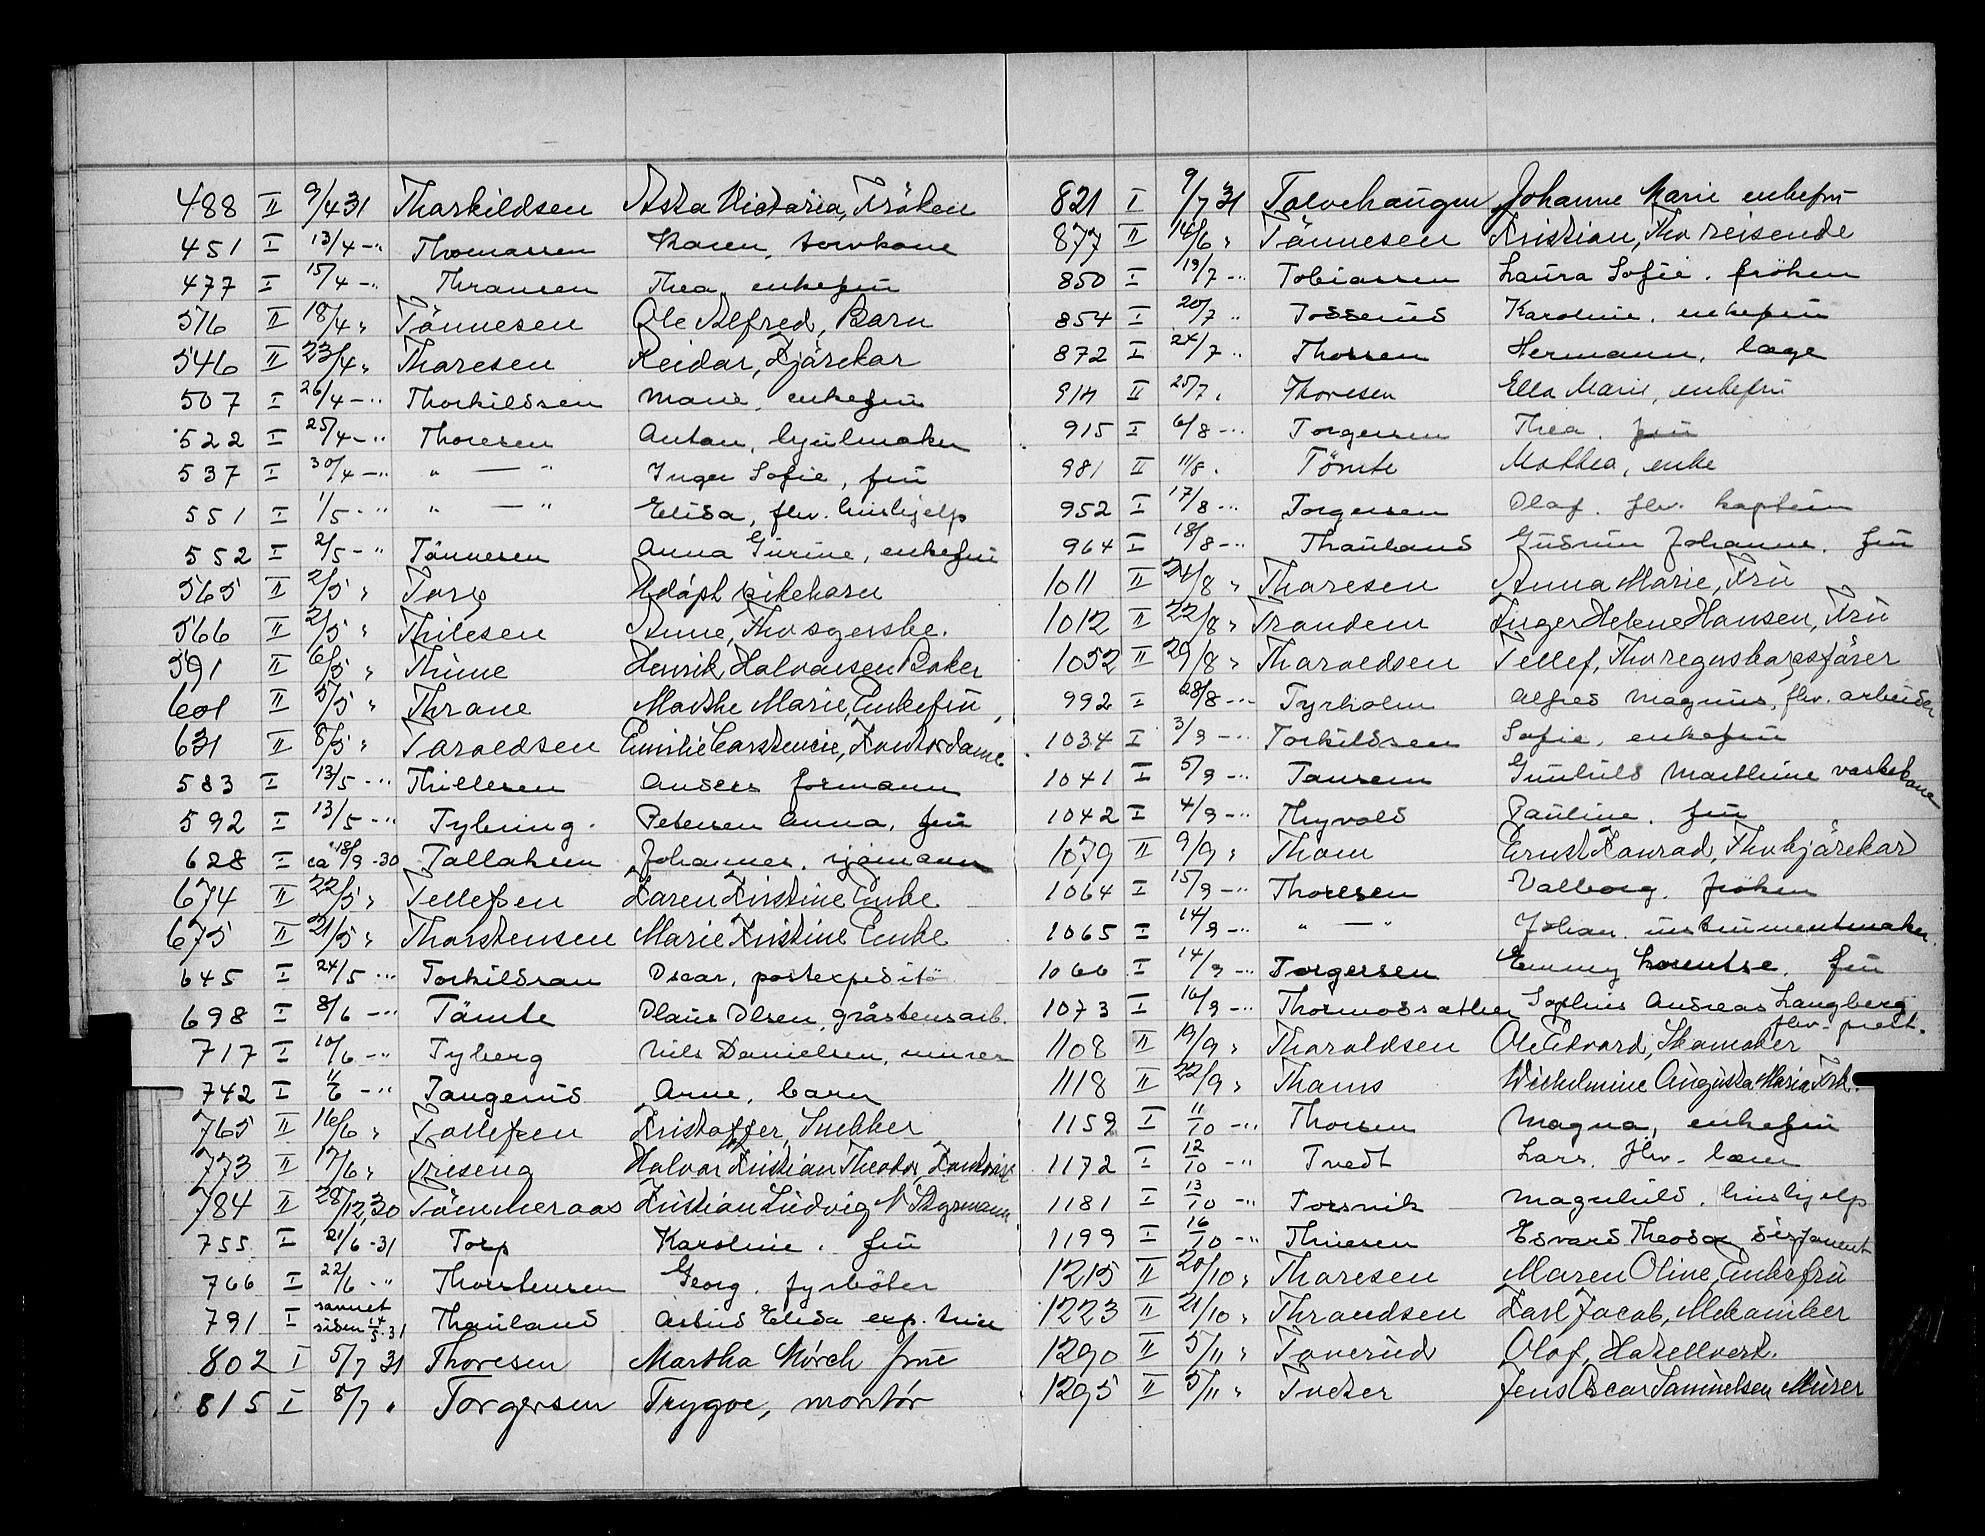 488 II 9/4 31 Thorkildsen Asta Victoria, Fröken
451 I 13/4 -" Thomassen Karen, torvkone
477 I 15/4 -" Thransen Thea enkefru
516 II 18/4 " Tönnesen Ole Alfred, Barn
546 II 23/4 " Thoresen Reidar, Kjörekar
507 I 26/4 -" Thorkildsen Marie, enkefru
522 I 25/4 -" Thoresen Anton, hjulmaker
537 I 30/4 -" " — " Inger Sofie, fru
551 I 1/5 -" " — " Elisa, fhv. hushjelp
552 I 2/5 -" Tönnesen Anna Gurine, enkefru
565 II 2/5 " Torp pikebarn
566 II 2/5 " Thilesen Anne, Fhv syerske.
591 II 6/5 " Thime Henrik Halvorsen Baker
601 II 5/5 " Thrane Marthe Marie, Enkefru
631 II 8/5 " Toroldsen Emilie Kontordame
583 I 13/5 -" Thillesen Anders formann
592 I 13/5 -" Tybring. Petersen Anna, fru
628 I ca 18/9 -30 Tallaksen Johannes, sjømann
674 II 22/5 " Tellefsen Karen Kristine Enke
675 II 21/5 " Thorstensen Marie Kristine Enke
645 I 24/5 -" Torkildsen Oscar, postexpeditö
698 I 8/6 -" Tömte Olaus Olsen, gråstensarb.
717 I 10/6 -" Tyberg Nils Danielsen, murer
742 I 11/6 -" Tangerud Arne, barn
765 II 16/6 " Tollefsen Kristoffer, Snekker
773 II 17/6 " Halvor Kristian Theodor,
784 II 28/12,30 Tömmeraas Kristian Ludvig N Styrmann
755 I 21/6 -31 Torp Karoline. fru
766 I 22/6 -" Thorstensen Georg. fyrböter
791 I savnet siden 14/5.31 Thauland Astrid Elisa exp.
802 I 5/7 31 Thoresen Martha Mörch frue
815 I 8/7 " Torgersen Trygve, montör
821 I 9/7 31 Tolvehaugen Johanne Marie enkefru
877 II 14/6 " Tönnesen Kristian, Fhv reisende
850 I 19/7 -" Tobiassen Laura Sofie. fröken
854 I 20/7 " Tosserud Karoline. enkefru
872 I 24/7 " Thoresen Hermann, læge
914 II 25/7 " Thoresen Ella Marie, enkefru
915 I 6/8 -" Torgersen Thea. fru
981 II 11/8 " Tömte Mathea, enke
952 I 17/8 -" Torgersen Olaf. fhv. kaptein
964 I 18/8 -" Thauland Gudrun Johanne. fru
1011 II 24/8 " Thoresen Anna Marie, Fru
1012 II 22/8 " Trandem Inger Helene Hansen, Fru
1052 II 29/8 " Thoroldsen Tellef, Fhv regnskapsförer
992 I 28/8 -" Tyrholm Alfred Magnus, fhv. arbeider
1034 I 3/9 -" Torkildsen Sofie, enkefru
1041 I 5/9 -" Tansem Gunhild Marthine vaskekone
1042 I 4/9 -" Thyvold Pauline. fru
1079 II 9/9 " Thom Ernst Konrad, Fhv kjörekar
1064 I 15/9 -" Thoresen Valborg. fröken
1065 I 14/9 -" " — " Johan. instrumentmaker.
1066 I 14/9 -" Torgersen Emmy Lorentse. fru
1073 I 16/9 -" Thormodsæther Sophus Andreas Langberg
fhv. prest.
1108 II 19/9 " Thoroldsen Ole Edvard, Skomaker
1118 II 22/9 " Thoms Wilhelmine Augusta Maria Frk.
1159 I 11/10 -" Thoresen Magna, enkefru
1172 I 12/10 -" Tvedt Lars. fhv.
1181 I 13/10 -" Torsvik Magnhild. hushjelp
1199 I 16/10 -" Thuesen Edvard Theodor Sersjament
1215 II 20/10 " Thoresen Maren Oline, Enkefru
1223 II 21/10 " Throndsen Karl Jacob, Mekaniker
1290 II 5/11 " Toverud Olaf, Hotellvert.
1295 II 5/11 " Tveter Jens Oscar Samuelsen, Murer